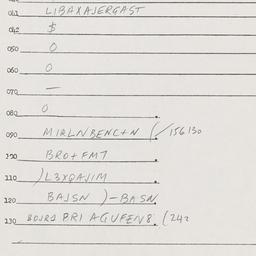 041 LIBAXAJERGAST
042 $
050 0
060 0
070 —
080 0
090 MIRLNBENC+N (/156130
100 BRO+FMT
110 )L3XQAJIM
120 BAJSN )-BASN.
130 BOJRD PRI AGUFEN8. (242